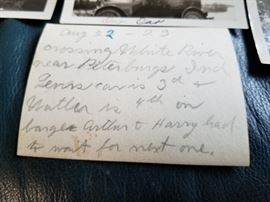 Our Car
Aug 22 - 23
crossing White River
near Petersburgs Ind
Lenis car is 3rd +
Walter is 4th in
barge Arthur + Harry had
to wait for next one.